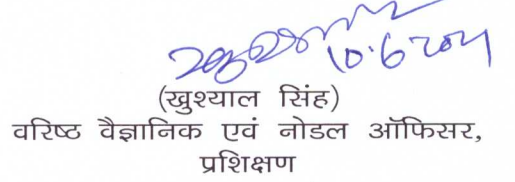 10.6.2021
(खुश्याल सिंह)
वरिष्ठ वैज्ञानिक एवं नोडल ऑफिसर,
प्रशिक्षण